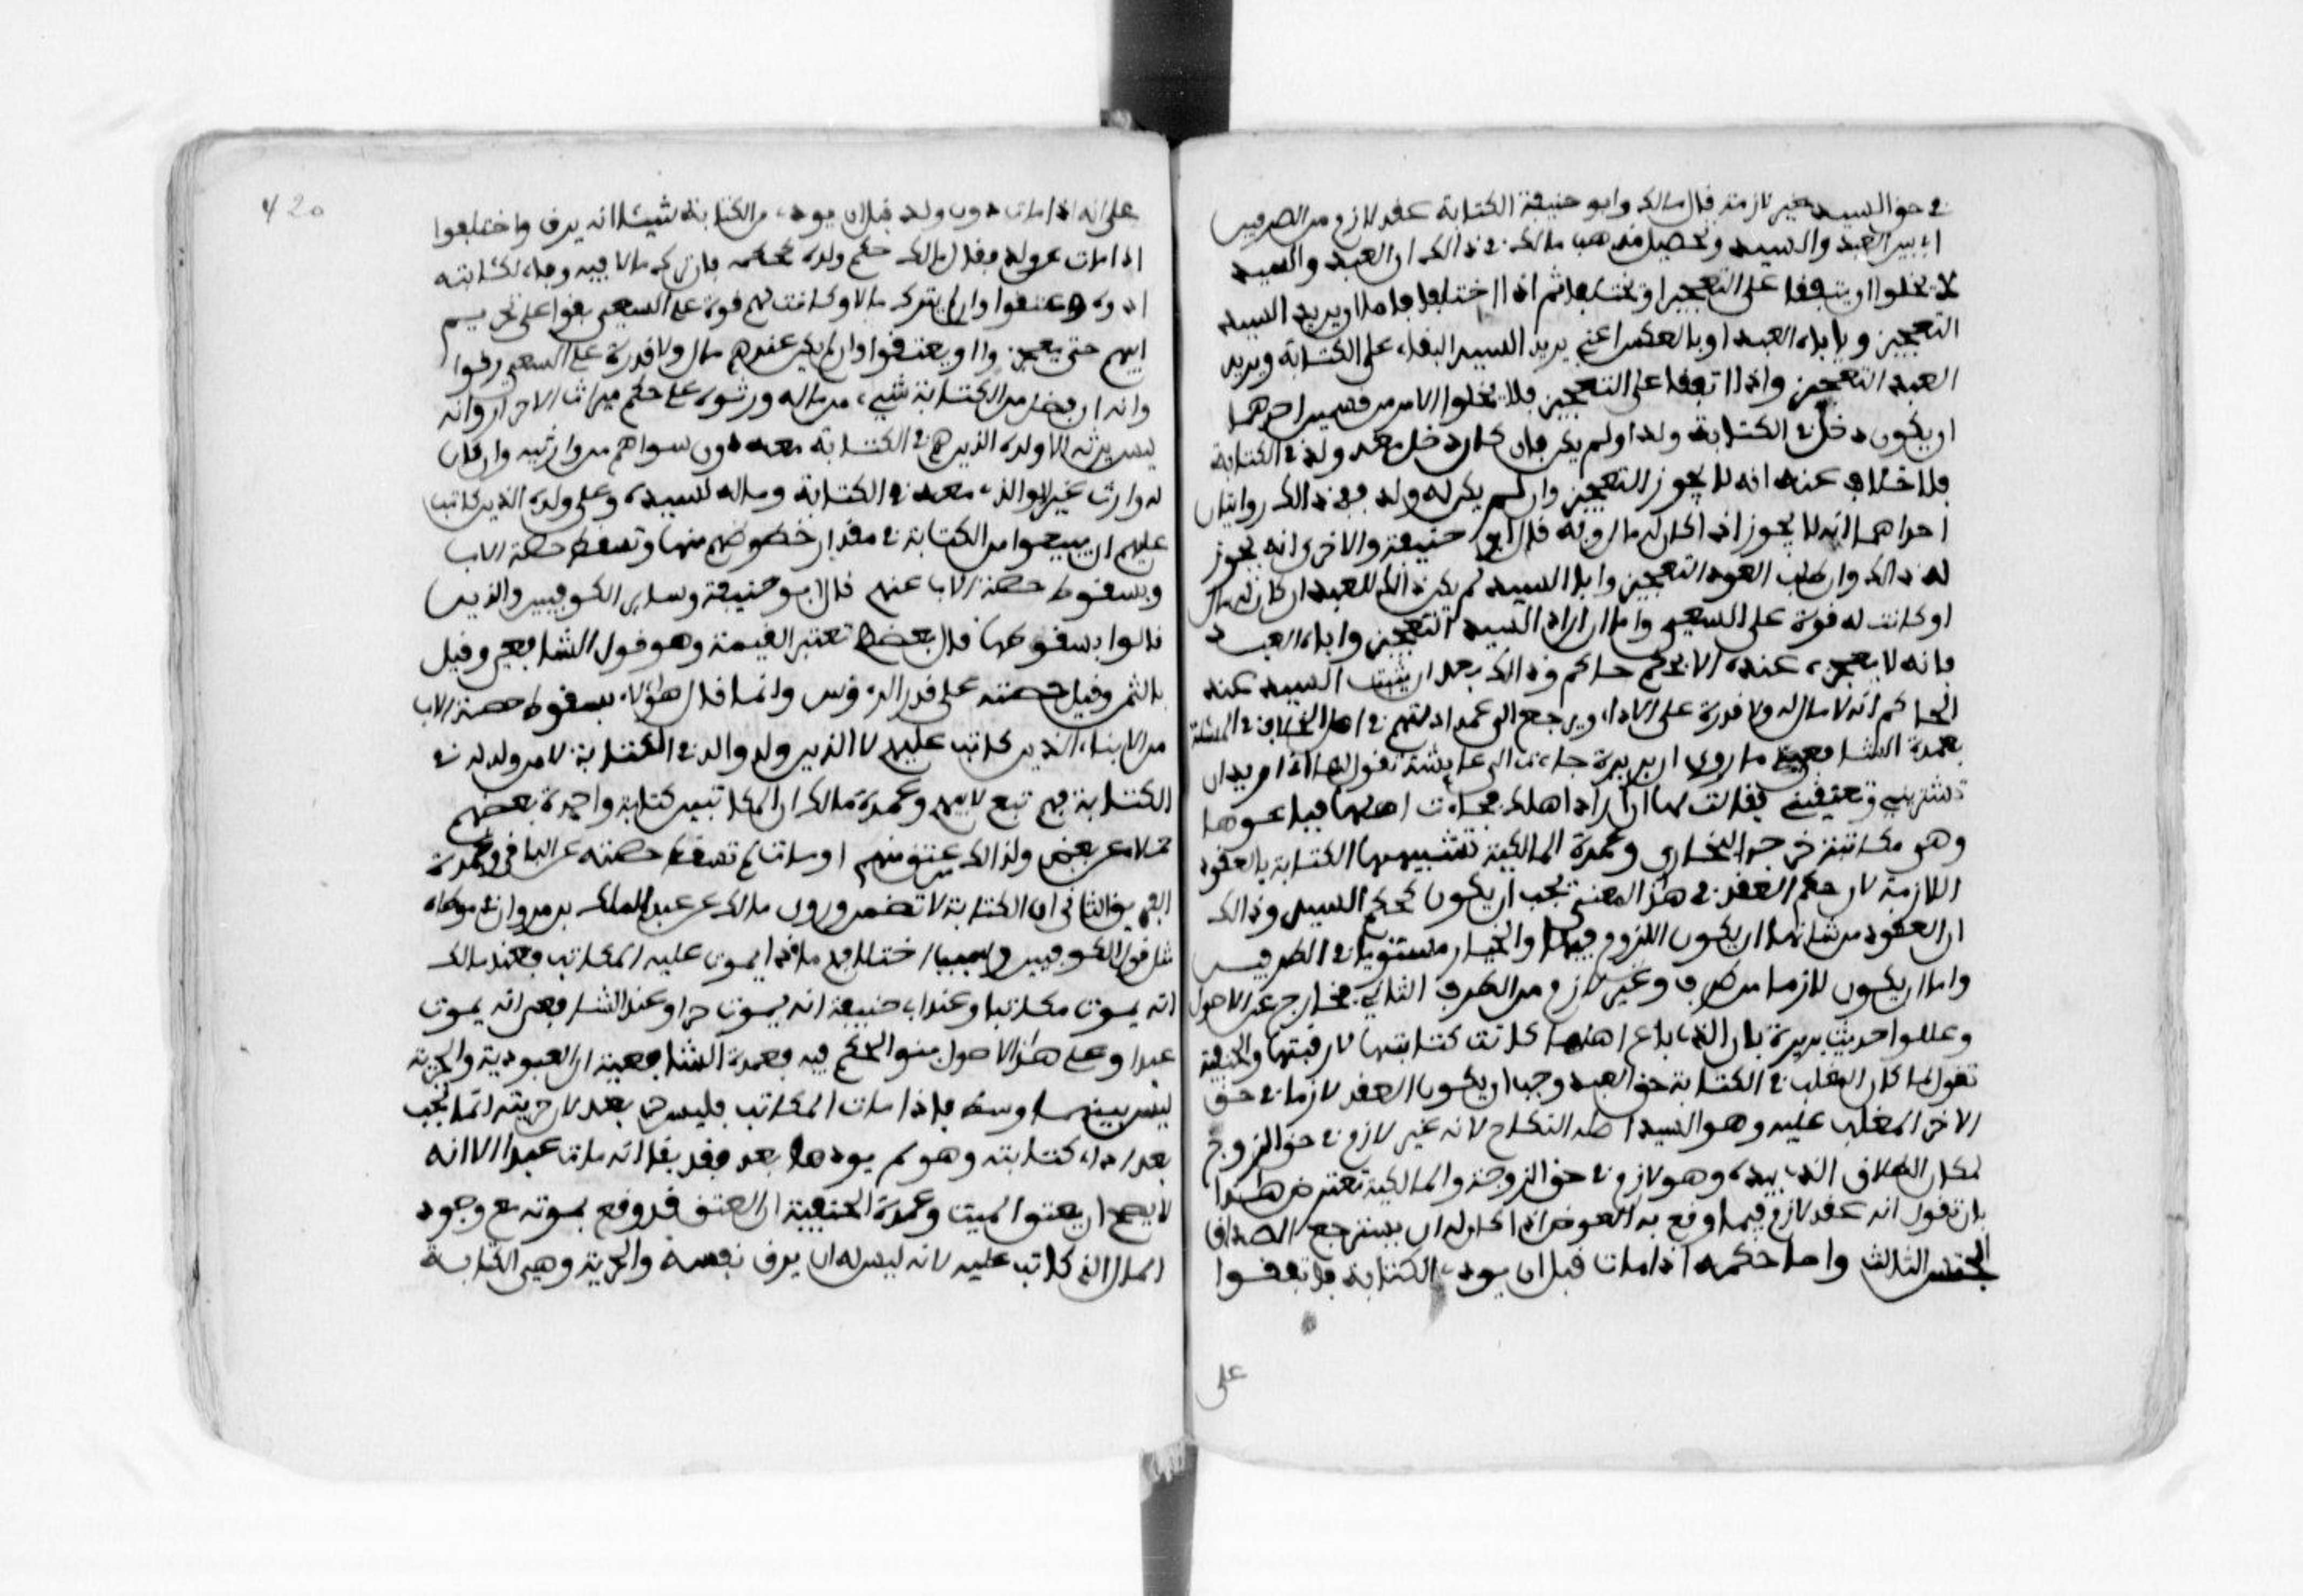 في حق السيد غير لازمة قال مالك وابو حنيفة الكتابة عقد لازم من الطرفين
اي بين العبد والسيد وتحصيل مذهب مالك في ذالك ان العبد والسيد
لا يخلوا ان يتفقا على التعجيز او يختلفا ثم اذا اختلفا فاما ان يريد السيد
التعجيز وياباه العبد او بالعكس اعني يريد السيد البقاء على الكتابة ويريد
العبد التعجيز واذا اتفقا على التعجيز فلا يخلوا الامر من قسمين احدهما
ان يكون دخل في الكتابة ولد او لم يكن فان كان دخل معه ولد في الكتابة
فلا خلاف عنه انه لا يجوز التعجيز وان لم يكن له ولد ففي ذالك روايتان
احداهما انه لا يجوز اذا كان له مال وبه قال ابو حنيفة والاخرى انه يجوز
له ذالك وان طلب العبد التعجيز وابا السيد لم يكن ذالك للعبد ان كان له مال
او كانت له قوة على السعي واما ان اراد السيد التعجيز واباه العبد
فانه لا يعجزه عنده الا بحكم حاكم وذالك بعد ان يثبت السيد عنه
الحاكم انه لا مال له ولا قدرة على الاداء ويرجع الى عمد ادلتهم في اصل الخلاف في المسئلة
فعمدة الشافعي ما روي ان بريرة جاءت الى عايشة تقول لها اني اريد ان
تشتريني وتعتقيني فقالت لها ان اراد اهلك فجاءت اهلها فباعوها
وهي مكاتبة خرجه البخاري وعمدة المالكية تشبيههم الكتابة بالعقود
اللازمة لان حكم العقد في هذا المعنى يجب ان يكون كحكم السيد وذالك
ان العقود من شانها ان يكون اللزوم فيها والخيار مستويا في الطرفين
واما ان يكون لازما من طرف وغير لازم من الطرف الثاني فخارج عن الاصول
وعللوا حديث بريرة بان الذي باع اهلها كانت كتابتها لا رقبتها والحنفية
تقول لما كان المغلب في الكتابة حق العبد وجب ان يكون العقد لازما في حق
الاخر المغلب عليه وهو السيد اصله النكاح لانه غير لازم في حق الزوج
لمكان الطلاق الذي بيده وهو لازم في حق الزوجة والمالكية تعترض هذا
بان تقول انه عقد لازم فيما وقع به العوض اذا كان له ان يسترجع الصداق
الجنس الثالث واما حكمه اذا مات قبل ان يودي الكتابة فاتفقوا
على
420
على انه اذا مات دون ولد قبل ان يودي من الكتابة شيئا انه يرق واختلفوا
اذا مات عن ولد فقال مالك حكم ولده كحكمه فان ترك مالا فيه وفاء لكتابته
ادوه وعتقوا وان لم يترك مالا وكانت لهم قوة على السعي بقوا على نجوم
ابيهم حتى يعجزوا او يعتقوا وان لم يكن عندهم مال ولا قدرة على السعي رقوا
وانه ان فضل من الكتابة شيء من ماله ورثوه على حكم ميراث الاحرار وانه
ليس يرثه الا ولده الذين هم في الكتابة معه دون سواهم من وارثيه وان كان
له وارث غير الولد الذي معه في الكتابة وماله لسيده وعلى ولده الذين كاتب
عليهم ان يبيعوا من الكتابة في مقدار حظوظهم منها وتسقط حصة الاب
وبسقوط حصة الاب عنهم قال ابو حنيفة وساير الكوفيين والذين
قالوا بسقوطها قال بعضهم تعتبر القيمة وهو قول الشافعي وقيل
بالثمن وقيل حصته على قدر الرءوس وانما قال هؤلاء بسقوط حصة الاب
من الابناء الذين كاتب عليهم لا الذين ولدوا له في الكتابة لان من ولد له في
الكتابة فهم تبع لابيهم وعمدة مالك ان المكاتبين كتابة واحدة بعضهم
حملاء عن بعض ولذالك من عتق منهم او مات لم تسقط حصته عن الباقي وعمدة
الفريق الثاني ان الكتابة لا تضمن وروى مالك عن عبد الملك بن مروان في موطاه
مثل قول الكوفيين وسبب اختلافهم ماذا يموت عليه المكاتب فعند مالك
انه يموت مكاتبا وعند ابي حنيفة انه يموت حرا وعند الشافعي انه يموت
عبدا وعلى هذا الاصول بنوا الحكم فيه فعمدة الشافعية ان العبودية والحرية
ليس بينهما وسط فاذا مات المكاتب فليس حر بعد لان حريته انما تجب
بعد اداء كتابته وهو لم يودها بعد فقد بقا انه مات عبدا لانه
لا يصح ان يعتق الميت وعمدة الحنفية ان العتق قد وقع بموته مع وجود
المال الذي كاتب عليه لانه ليس له ان يرق نفسه والحرية وهي الكتابة